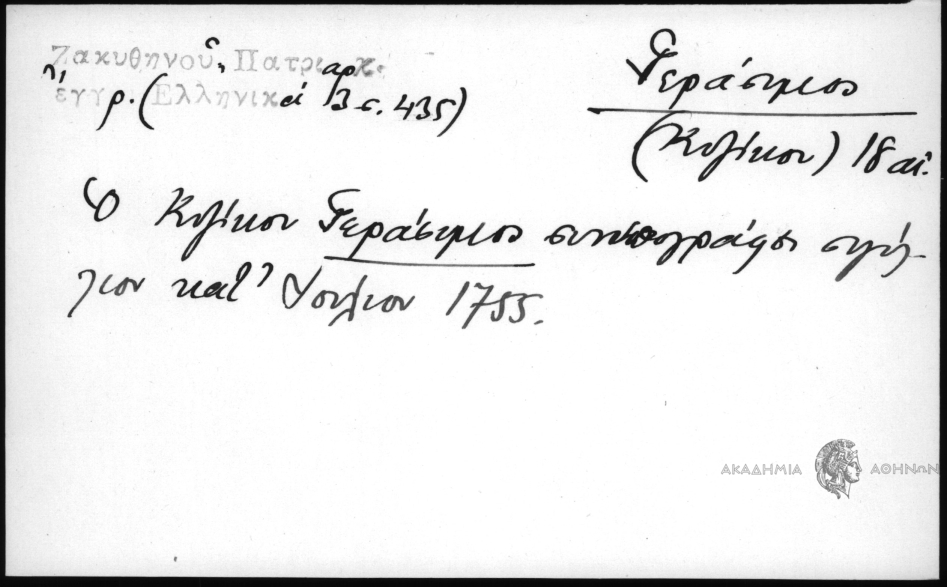 Ζακυθηνοῦ, Πατριαρχ.
ἔγγρ. (Ἑλληνικά 3 σ. 435)
Γεράσιμος
(Κυζίκου) 18 αἰ.
Ὁ Κυζίκου Γεράσιμος συνυπογράφει σιγίλ-
λιον κατ' Ἰούλιον 1755.
ΑΚΑΔΗΜΙΑ ΑΘΗΝΩΝ